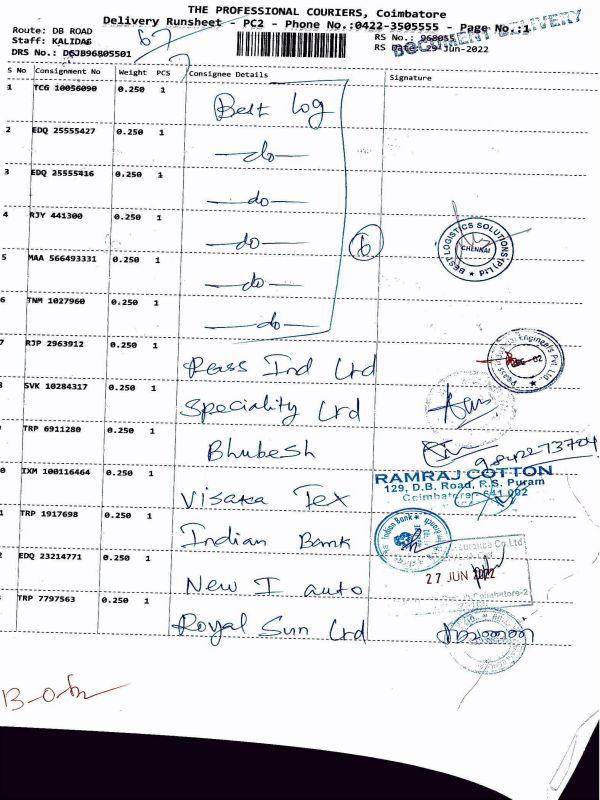 THE PROFESSIONAL COURIERS, Coimbatore
Delivery Runsheet - PC2 - Phone No.:0422-3505555 - Page No.:1
DOCUMENT DELIVERY
Route: DB ROAD
RS No.: 968055
Staff: KALIDAS
RS Date: 29-Jun-2022
DRS No.: D6JB96805501
67
S No Consignment No Weight PCS Consignee Details Signature
1 TCG 10056090 0.250 1 Best log
2 EDQ 25555427 0.250 1 —do—
3 EDQ 25555416 0.250 1 —do—
4 RJY 441300 0.250 1 —do—
6
BEST LOGISTICS SOLUTIONS (P) Ltd
CHENNAI
5 MAA 566493331 0.250 1 —do—
6 TNM 1027960 0.250 1 —do—
7 RJP 2963912 0.250 1 Peass Ind Ltd
Peass Industrial Engineers Pvt Ltd
SVK 10284317 0.250 1 Speciality Ltd
TRP 6911280 0.250 1 Bhubesh
9842273704
0 IXM 100116464 0.250 1 Visaka Tex
RAMRAJ COTTON
129, D.B. Road, R.S. Puram
Coimbatore - 641 002
1 TRP 1917698 0.250 1 Indian Bank
Indian Bank
2 EDQ 23214771 0.250 1 New I auto
Insurance Co.Ltd.
27 JUN 2022
Coimbatore-2
TRP 7797563 0.250 1 Royal Sun Ltd